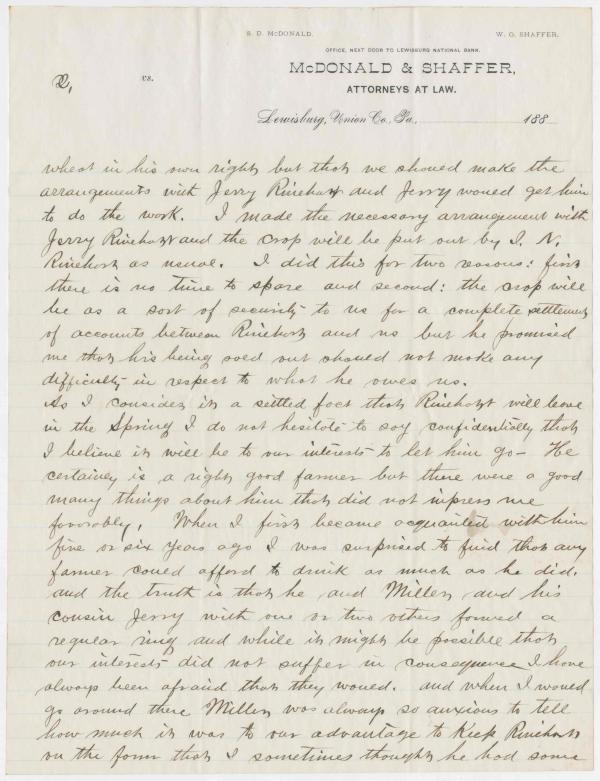 S. D. McDONALD. W. O. SHAFFER.
OFFICE, NEXT DOOR TO LEWISBURG NATIONAL BANK.
McDONALD & SHAFFER,
ATTORNEYS AT LAW.
vs.
Lewisburg, Union Co., Pa., 188
wheat in his own right but that we should make the
arrangements with Jerry Rinehart and Jerry would get him
to do the work. I made the necessary arrangement with
Jerry Rinehart and the crop will be put out by I. N.
Rinehart as usual. I did this for two reasons: first
there is no time to spare and second: the crop will
be as a sort of security to us for a complete settlement
of accounts between Rinehart and us but he promised
me that his being soed out should not make any
difficulty in respect to what he owes us.
As I consider it a settled fact that Rinehart will leave
in the Spring I do not hesitate to say confidentially that
I believe it will be to our interests to let him go – He
certainly is a right good farmer but there were a good
many things about him that did not inpress me
favorably. When I first became acquainted with him
five or six years ago I was surprised to find that any
farmer could afford to drink as much as he did.
and the truth is that he and Miller and his
cousin Jerry with one or two others formed a
regular ring and while it might be possible that
our interests did not suffer in consequence I have
always been afraid that they would. and when I would
go around there Miller was always so auxious to tell
how much it was to our advantage to Keep Rinehart
on the farm that I sometimes thought he had some